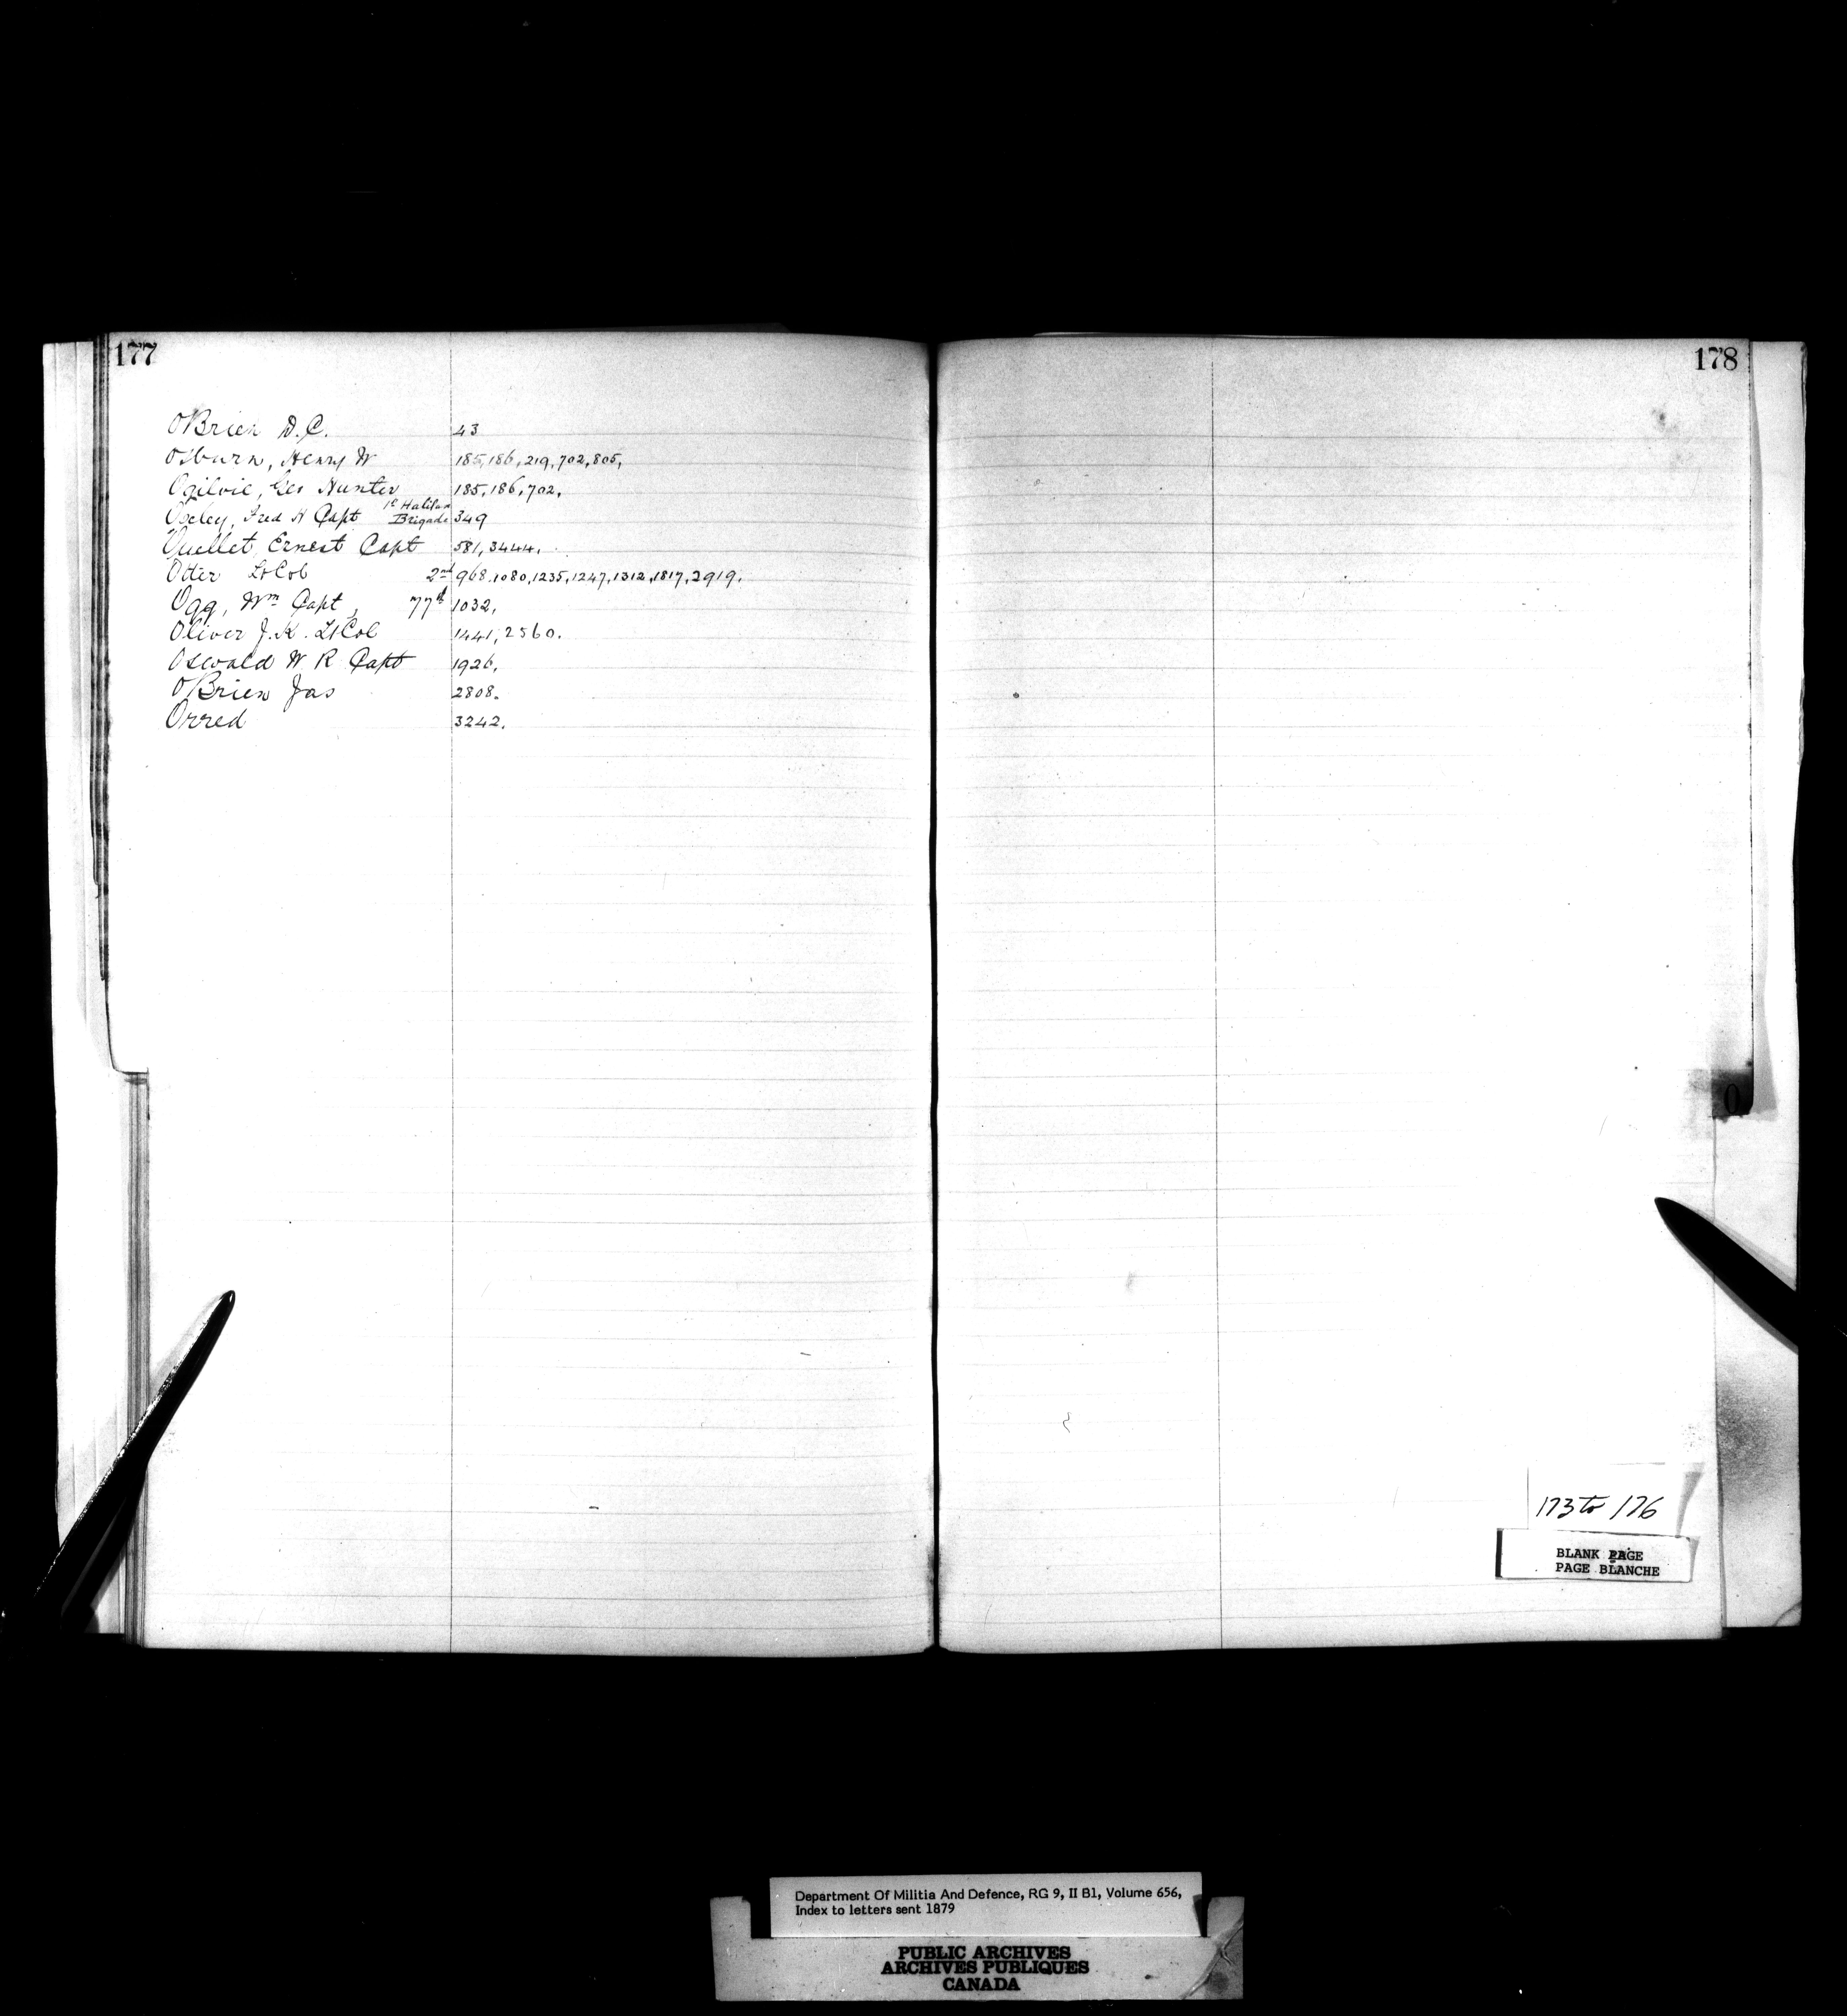 177
O'Brien D.C. 43
Osburn, Henry W 185, 186, 219, 702, 805,
Ogilvie, Geo Hunter 185, 186, 702,
Oxley, Fred H Capt 1st Halifax Brigade 349
Ouellet, Ernest Capt 581, 3444.
Otter Lt Col 2nd 968, 1080, 1235, 1247, 1312, 1817, 2919.
Ogg, Wm Capt, 77th 1032,
Oliver J.K. Lt Col 1441, 2560.
Oswald W R Capt 1926,
O'Brien Jas 2808.
Orred 3242.
178
O
173 to 176
BLANK PAGE
PAGE BLANCHE
Department Of Militia And Defence, RG 9, II B1, Volume 656,
Index to letters sent 1879
PUBLIC ARCHIVES
ARCHIVES PUBLIQUES
CANADA